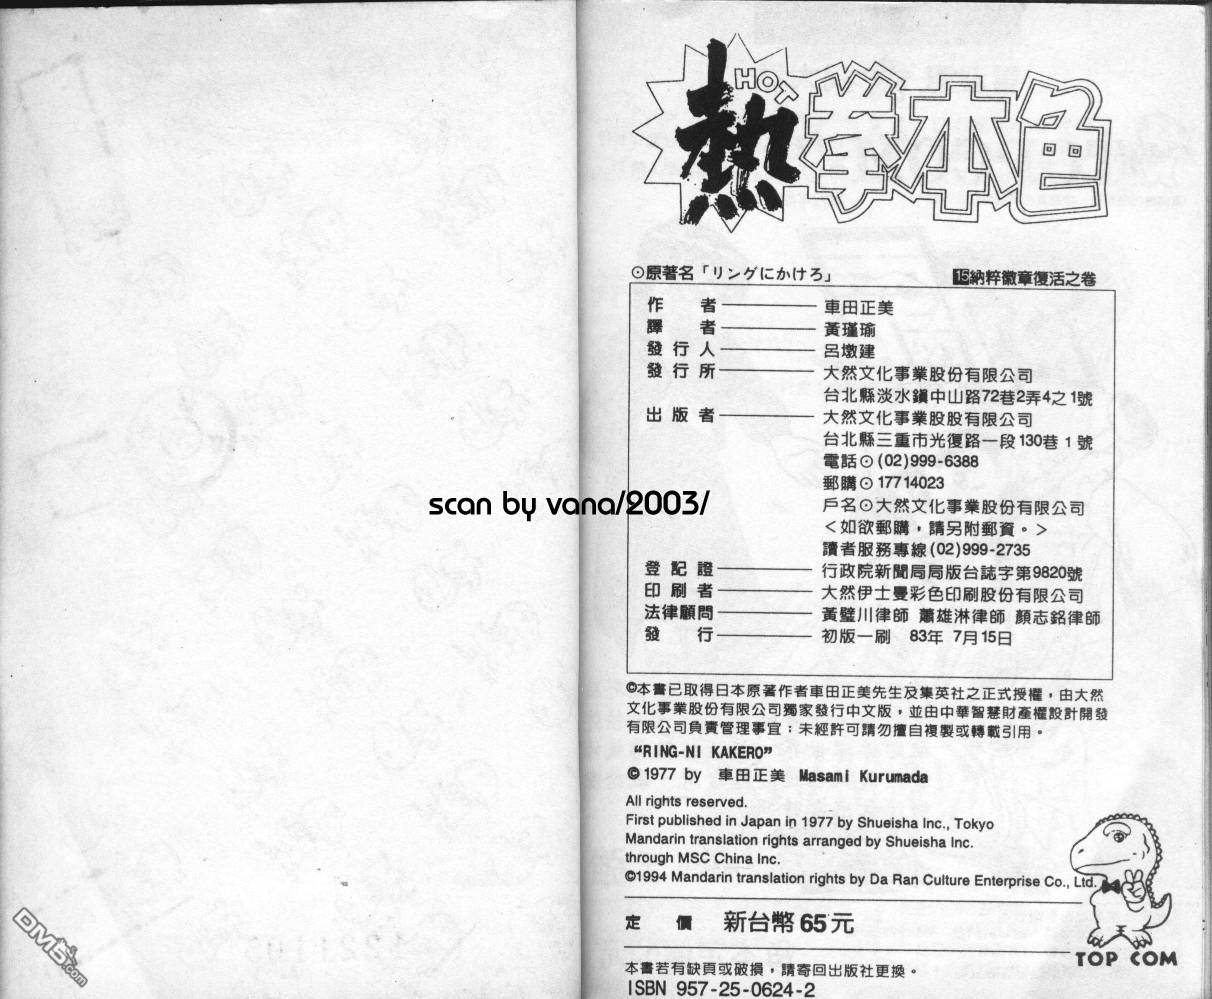 熱拳本色
HOT
⊙原著名「リングにかけろ」
15納粹徽章復活之卷
作者 車田正美
譯者 黃瑾瑜
發行人 呂墩建
發行所 大然文化事業股份有限公司
台北縣淡水鎮中山路72巷2弄4之1號
出版者 大然文化事業股股有限公司
台北縣三重市光復路一段130巷1號
電話⊙(02)999-6388
郵購⊙17714023
戶名⊙大然文化事業股份有限公司
＜如欲郵購，請另附郵資。＞
讀者服務專線(02)999-2735
登記證 行政院新聞局局版台誌字第9820號
印刷者 大然伊士曼彩色印刷股份有限公司
法律顧問 黃璧川律師 蕭雄淋律師 顏志銘律師
發行 初版一刷 83年7月15日
©本書已取得日本原著作者車田正美先生及集英社之正式授權，由大然
文化事業股份有限公司獨家發行中文版，並由中華智慧財產權設計開發
有限公司負責管理事宜；未經許可請勿擅自複製或轉載引用。
“RING-NI KAKERO”
©1977 by 車田正美 Masami Kurumada
All rights reserved.
First published in Japan in 1977 by Shueisha Inc., Tokyo
Mandarin translation rights arranged by Shueisha Inc.
through MSC China Inc.
©1994 Mandarin translation rights by Da Ran Culture Enterprise Co., Ltd.
定價 新台幣65元
TOP COM
本書若有缺頁或破損，請寄回出版社更換。
ISBN 957-25-0624-2
scan by vana/2003/
DM5.com